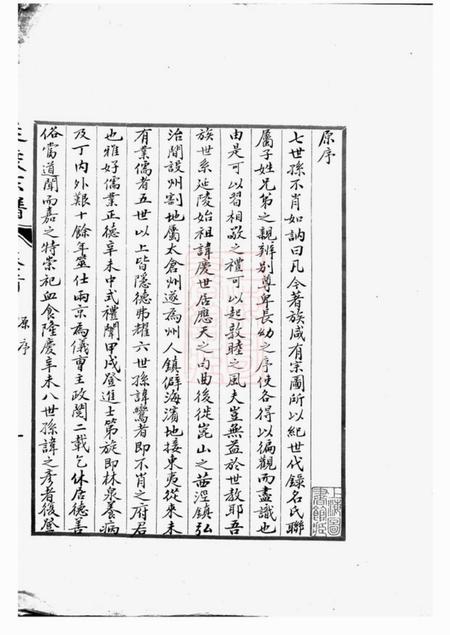 原序
七世孫不肖如訥曰凡今著族咸有宗圖所以紀世代錄名氏聯
屬子姓兄弟之親辨別尊卑長幼之序使各得以徧觀而盡識也
由是可以習相敬之禮可以起敦睦之風夫豈無益於世教耶吾
族世系延陵始祖諱慶世居應天之句曲後徙崑山之茜涇鎮弘
治間設州割地屬太倉州遂為州人鎮僻海濱地接東夷從來未
有業儒者五世以上皆隱德弗耀六世孫諱鸞者即不肖之府君
也雅好儒業正德辛未中式禮闈甲戌登進士第旋即林泉養病
及丁內外艱十餘年筮仕兩京為儀曹主政閱二載乞休居德善
俗當道聞而嘉之特崇祀血食隆慶辛未八世孫諱之彥者後登
原序
一
上海圖
書館藏